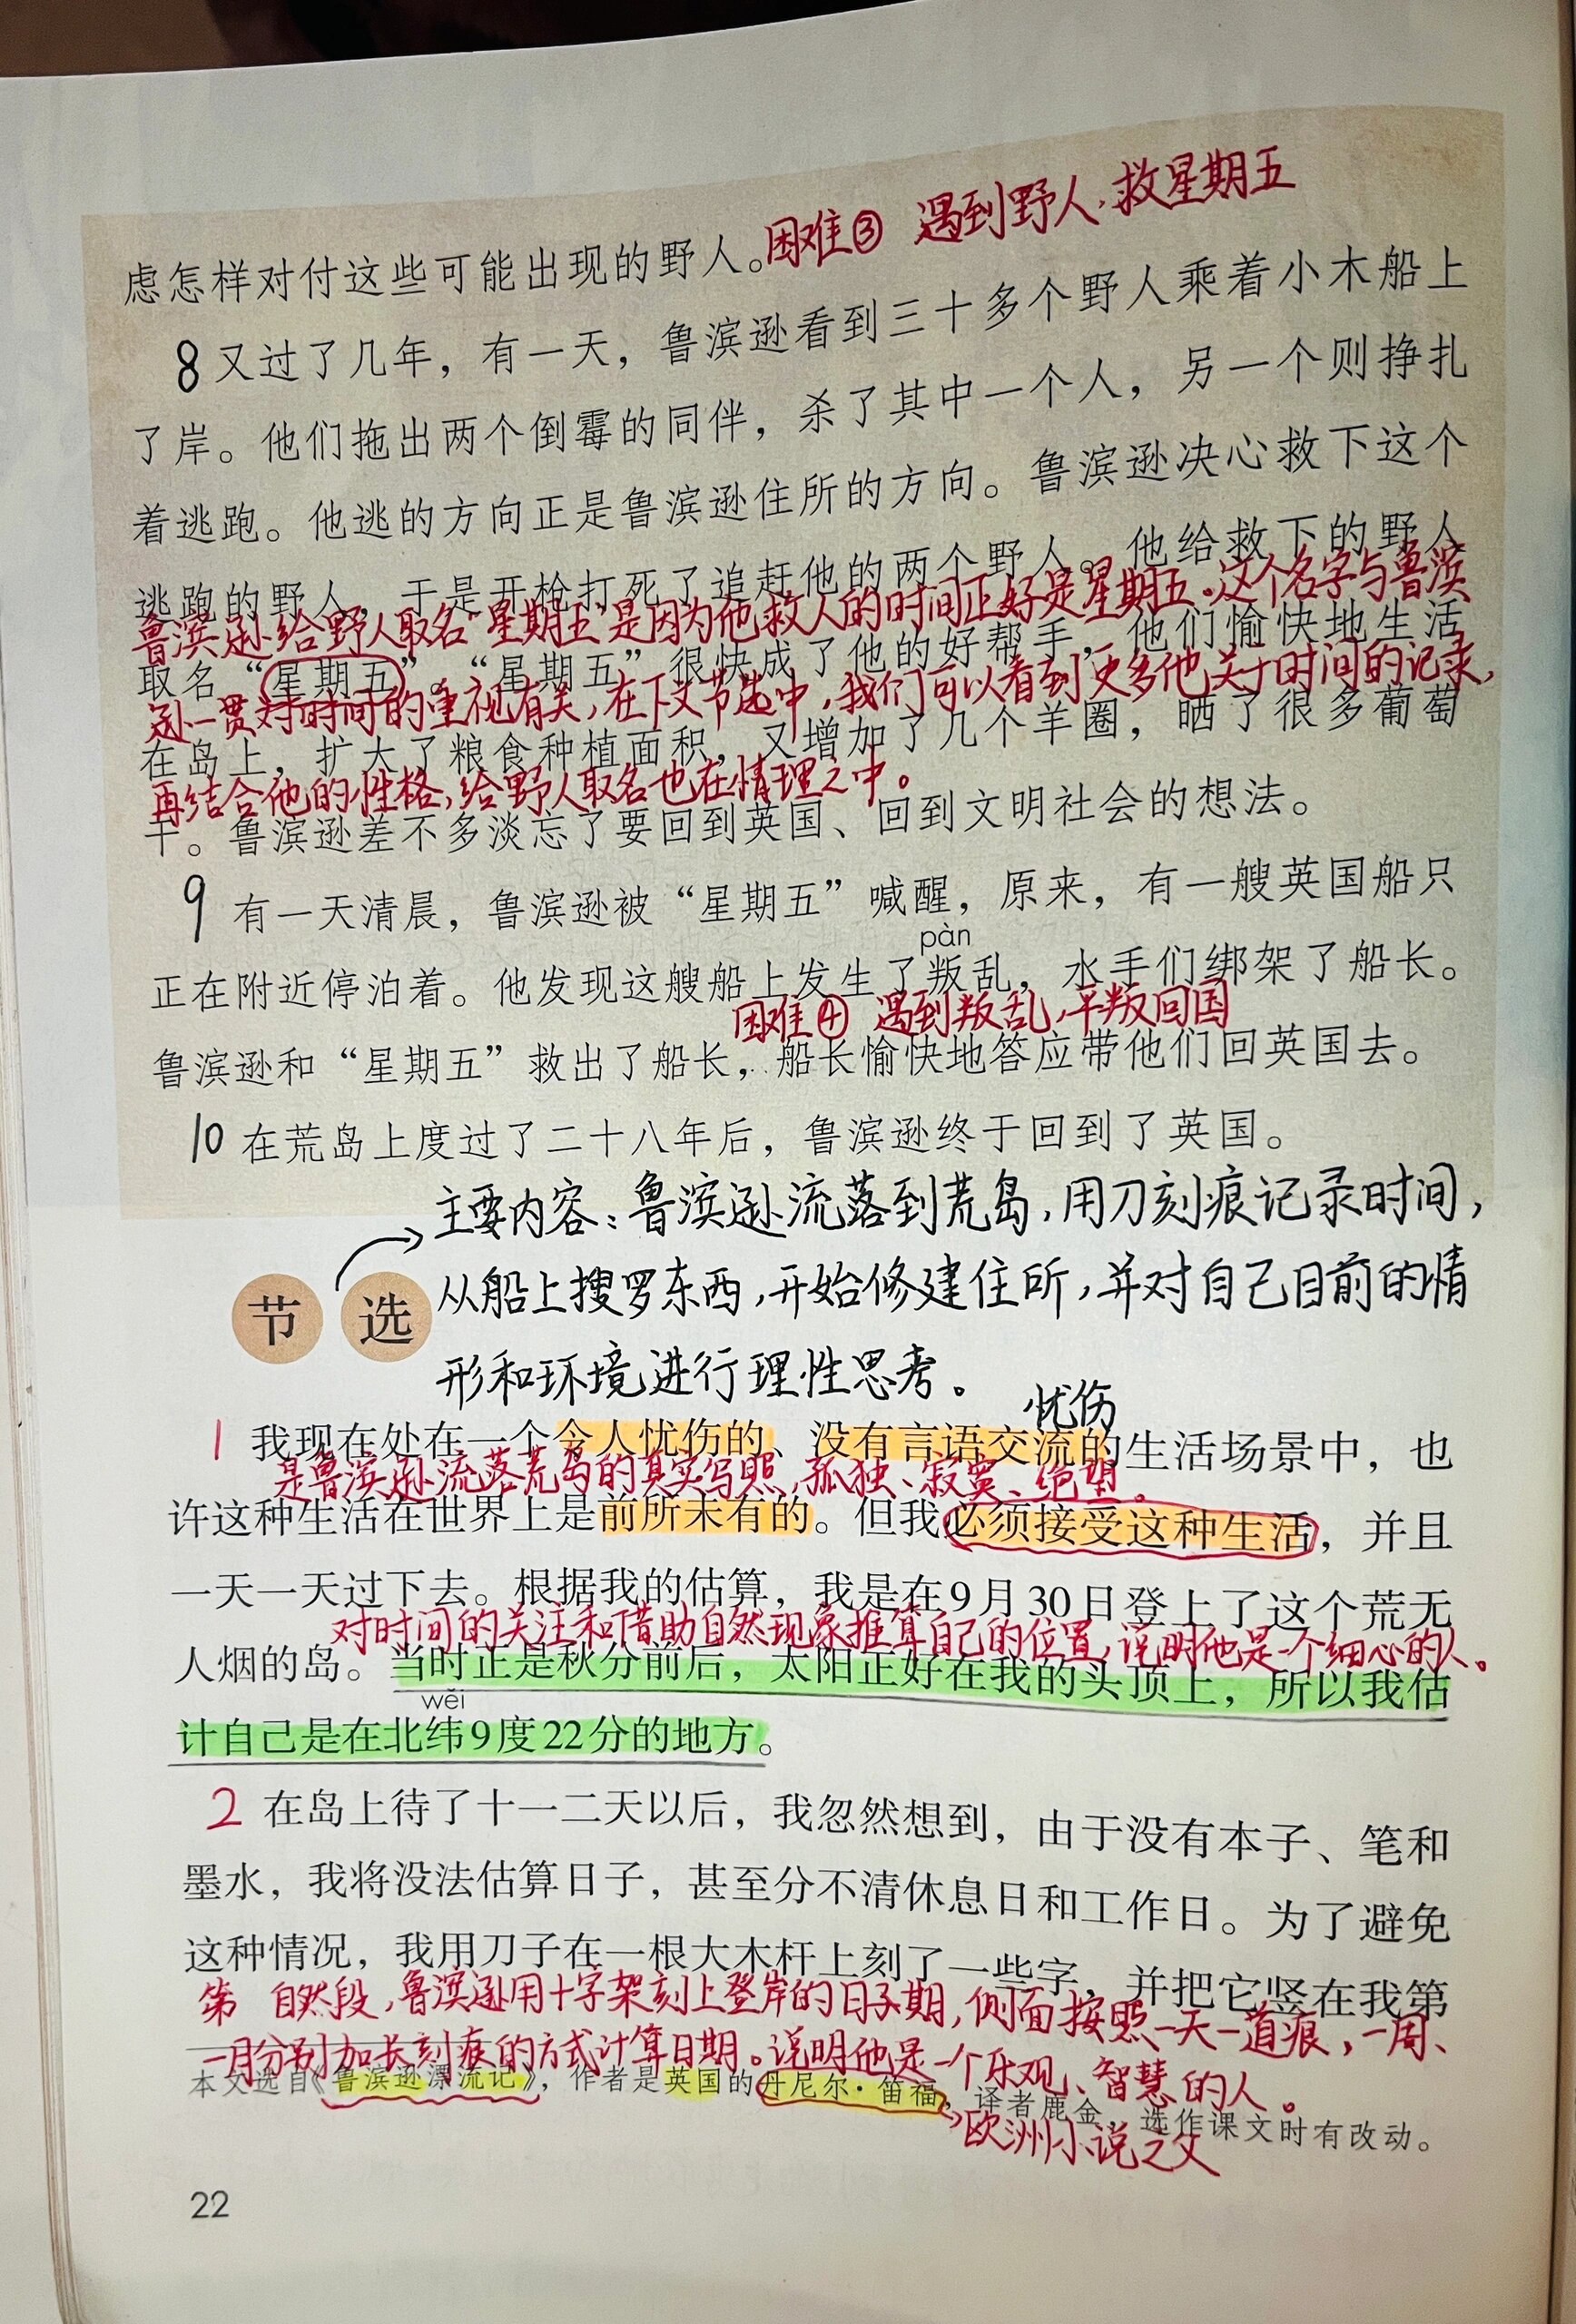 困难③ 遇到野人,救星期五
虑怎样对付这些可能出现的野人。
8 又过了几年，有一天，鲁滨逊看到三十多个野人乘着小木船上
了岸。他们拖出两个倒霉的同伴，杀了其中一个人，另一个则挣扎
着逃跑。他逃的方向正是鲁滨逊住所的方向。鲁滨逊决心救下这个
逃跑的野人，于是开枪打死了追赶他的两个野人。他给救下的野人
鲁滨逊给野人取名“星期五”是因为他救人的时间正好是星期五。这个名字与鲁滨
取名“星期五”。“星期五”很快成了他的好帮手，他们愉快地生活
逊一贯对时间的重视有关,在下文节选中,我们可以看到更多他关于时间的记录,
在岛上，扩大了粮食种植面积，又增加了几个羊圈，晒了很多葡萄
再结合他的性格,给野人取名也在情理之中。
干。鲁滨逊差不多淡忘了要回到英国、回到文明社会的想法。
9 有一天清晨，鲁滨逊被“星期五”喊醒，原来，有一艘英国船只
pàn
正在附近停泊着。他发现这艘船上发生了叛乱，水手们绑架了船长。
困难④ 遇到叛乱,平叛回国
鲁滨逊和“星期五”救出了船长，船长愉快地答应带他们回英国去。
10 在荒岛上度过了二十八年后，鲁滨逊终于回到了英国。
主要内容:鲁滨逊流落到荒岛,用刀刻痕记录时间,
从船上搜罗东西,开始修建住所,并对自己目前的情
节选
形和环境进行理性思考。
忧伤
1 我现在处在一个令人忧伤的、没有言语交流的生活场景中，也
是鲁滨逊流落荒岛的真实写照,孤独、寂寞、绝望。
许这种生活在世界上是前所未有的。但我必须接受这种生活，并且
一天一天过下去。根据我的估算，我是在9月30日登上了这个荒无
对时间的关注和借助自然现象推算自己的位置,说明他是一个细心的人。
人烟的岛。当时正是秋分前后，太阳正好在我的头顶上，所以我估
wěi
计自己是在北纬9度22分的地方。
2 在岛上待了十一二天以后，我忽然想到，由于没有本子、笔和
墨水，我将没法估算日子，甚至分不清休息日和工作日。为了避免
这种情况，我用刀子在一根大木杆上刻了一些字，并把它竖在我第
第 自然段,鲁滨逊用十字架刻上登岸的日子期,侧面按照一天一道痕,一周、
一月分别加长刻痕的方式计算日期。说明他是一个乐观、智慧的人。
本文选自《鲁滨逊漂流记》，作者是英国的丹尼尔·笛福，译者鹿金，选作课文时有改动。
欧洲小说之父
22